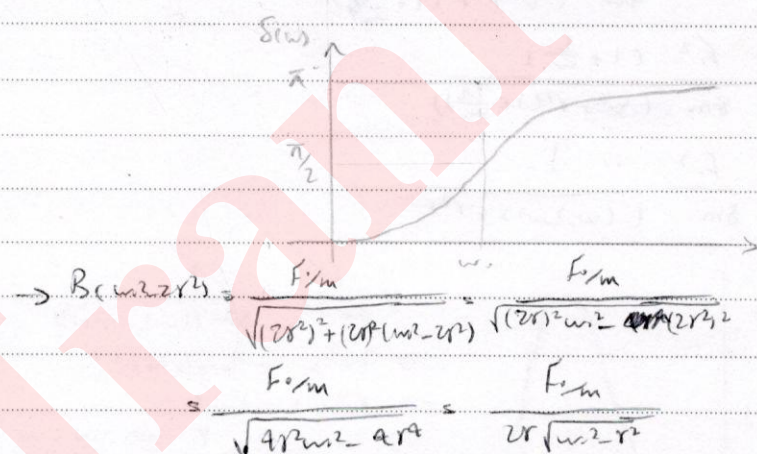 δ(ω)
π
π/2
ω₀
→ B(ω₀²-2γ²) = F₀/m / √((2γ²)²+(2γ)²(ω₀²-2γ²) = F₀/m / √((2γ)²ω₀² - (2γ²)²
= F₀/m / √4γ²ω₀² - 4γ⁴ = F₀/m / 2γ√ω₀²-γ²